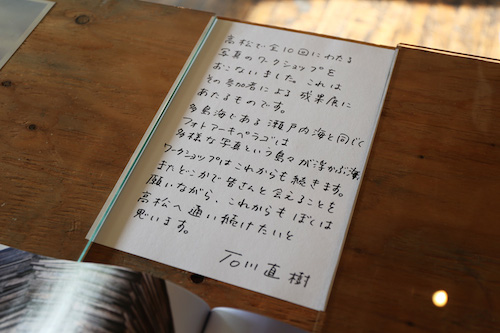 高松で全10回にわたる
写真のワークショップを
おこないました。これは
その参加者による成果展に
あたるものです。
多島海である瀬戸内海と同じく
フォトアーキペラゴは
多様な写真という島々が浮かぶ海
ワークショップはこれからも続きます。
またどこかで皆さんと会えることを
願いながら、これからもぼくは
高松へ通い続けたいと
思います。
石川直樹